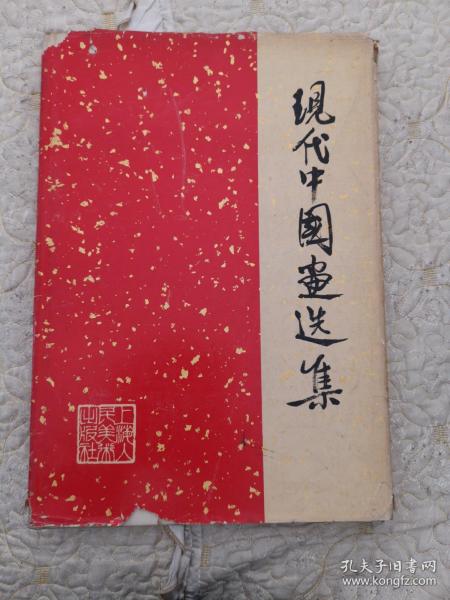 現代中國畫选集
上海人
民美術
出版社
孔夫子旧书网
www.kongfz.com